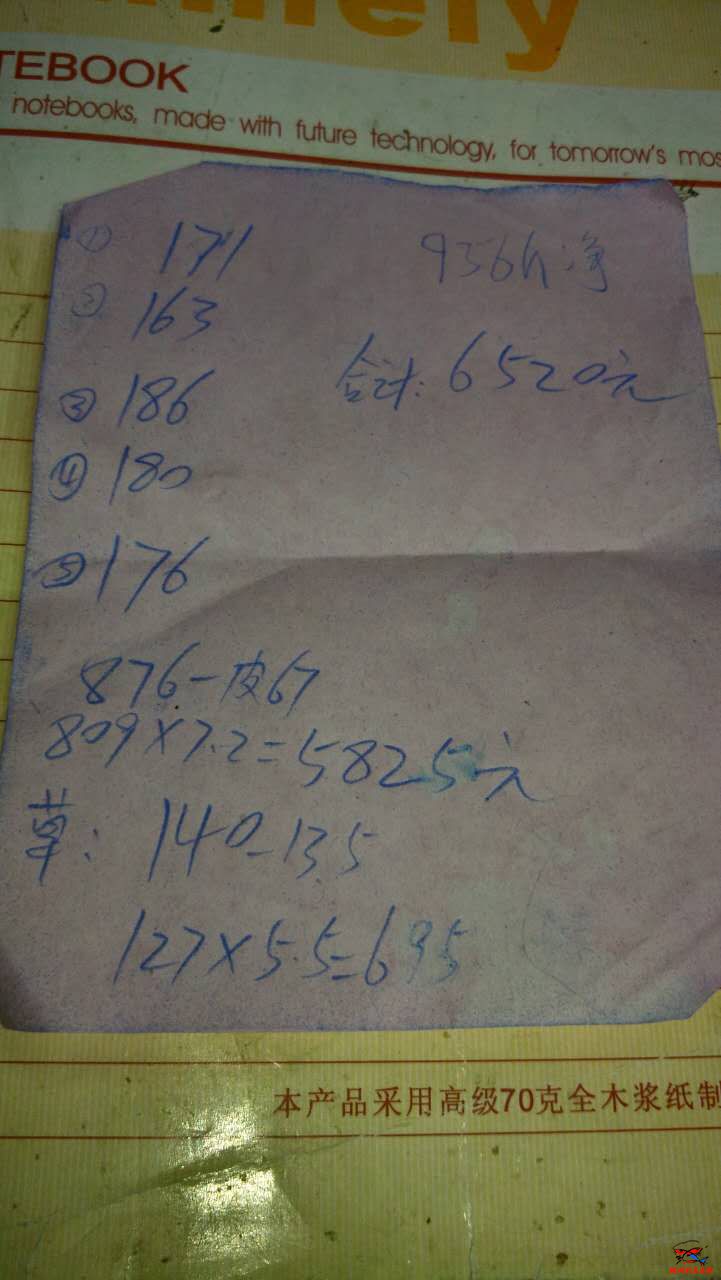 TEBOOK
notebooks, made with future technology, for tomorrow's mos
① 171
② 163
③ 186
④ 180
⑤ 176
936斤 净
合计: 6520元
876-皮67
809×7.2=5825元
草: 140-13.5
127×5.5=695
本产品采用高级70克全木浆纸制